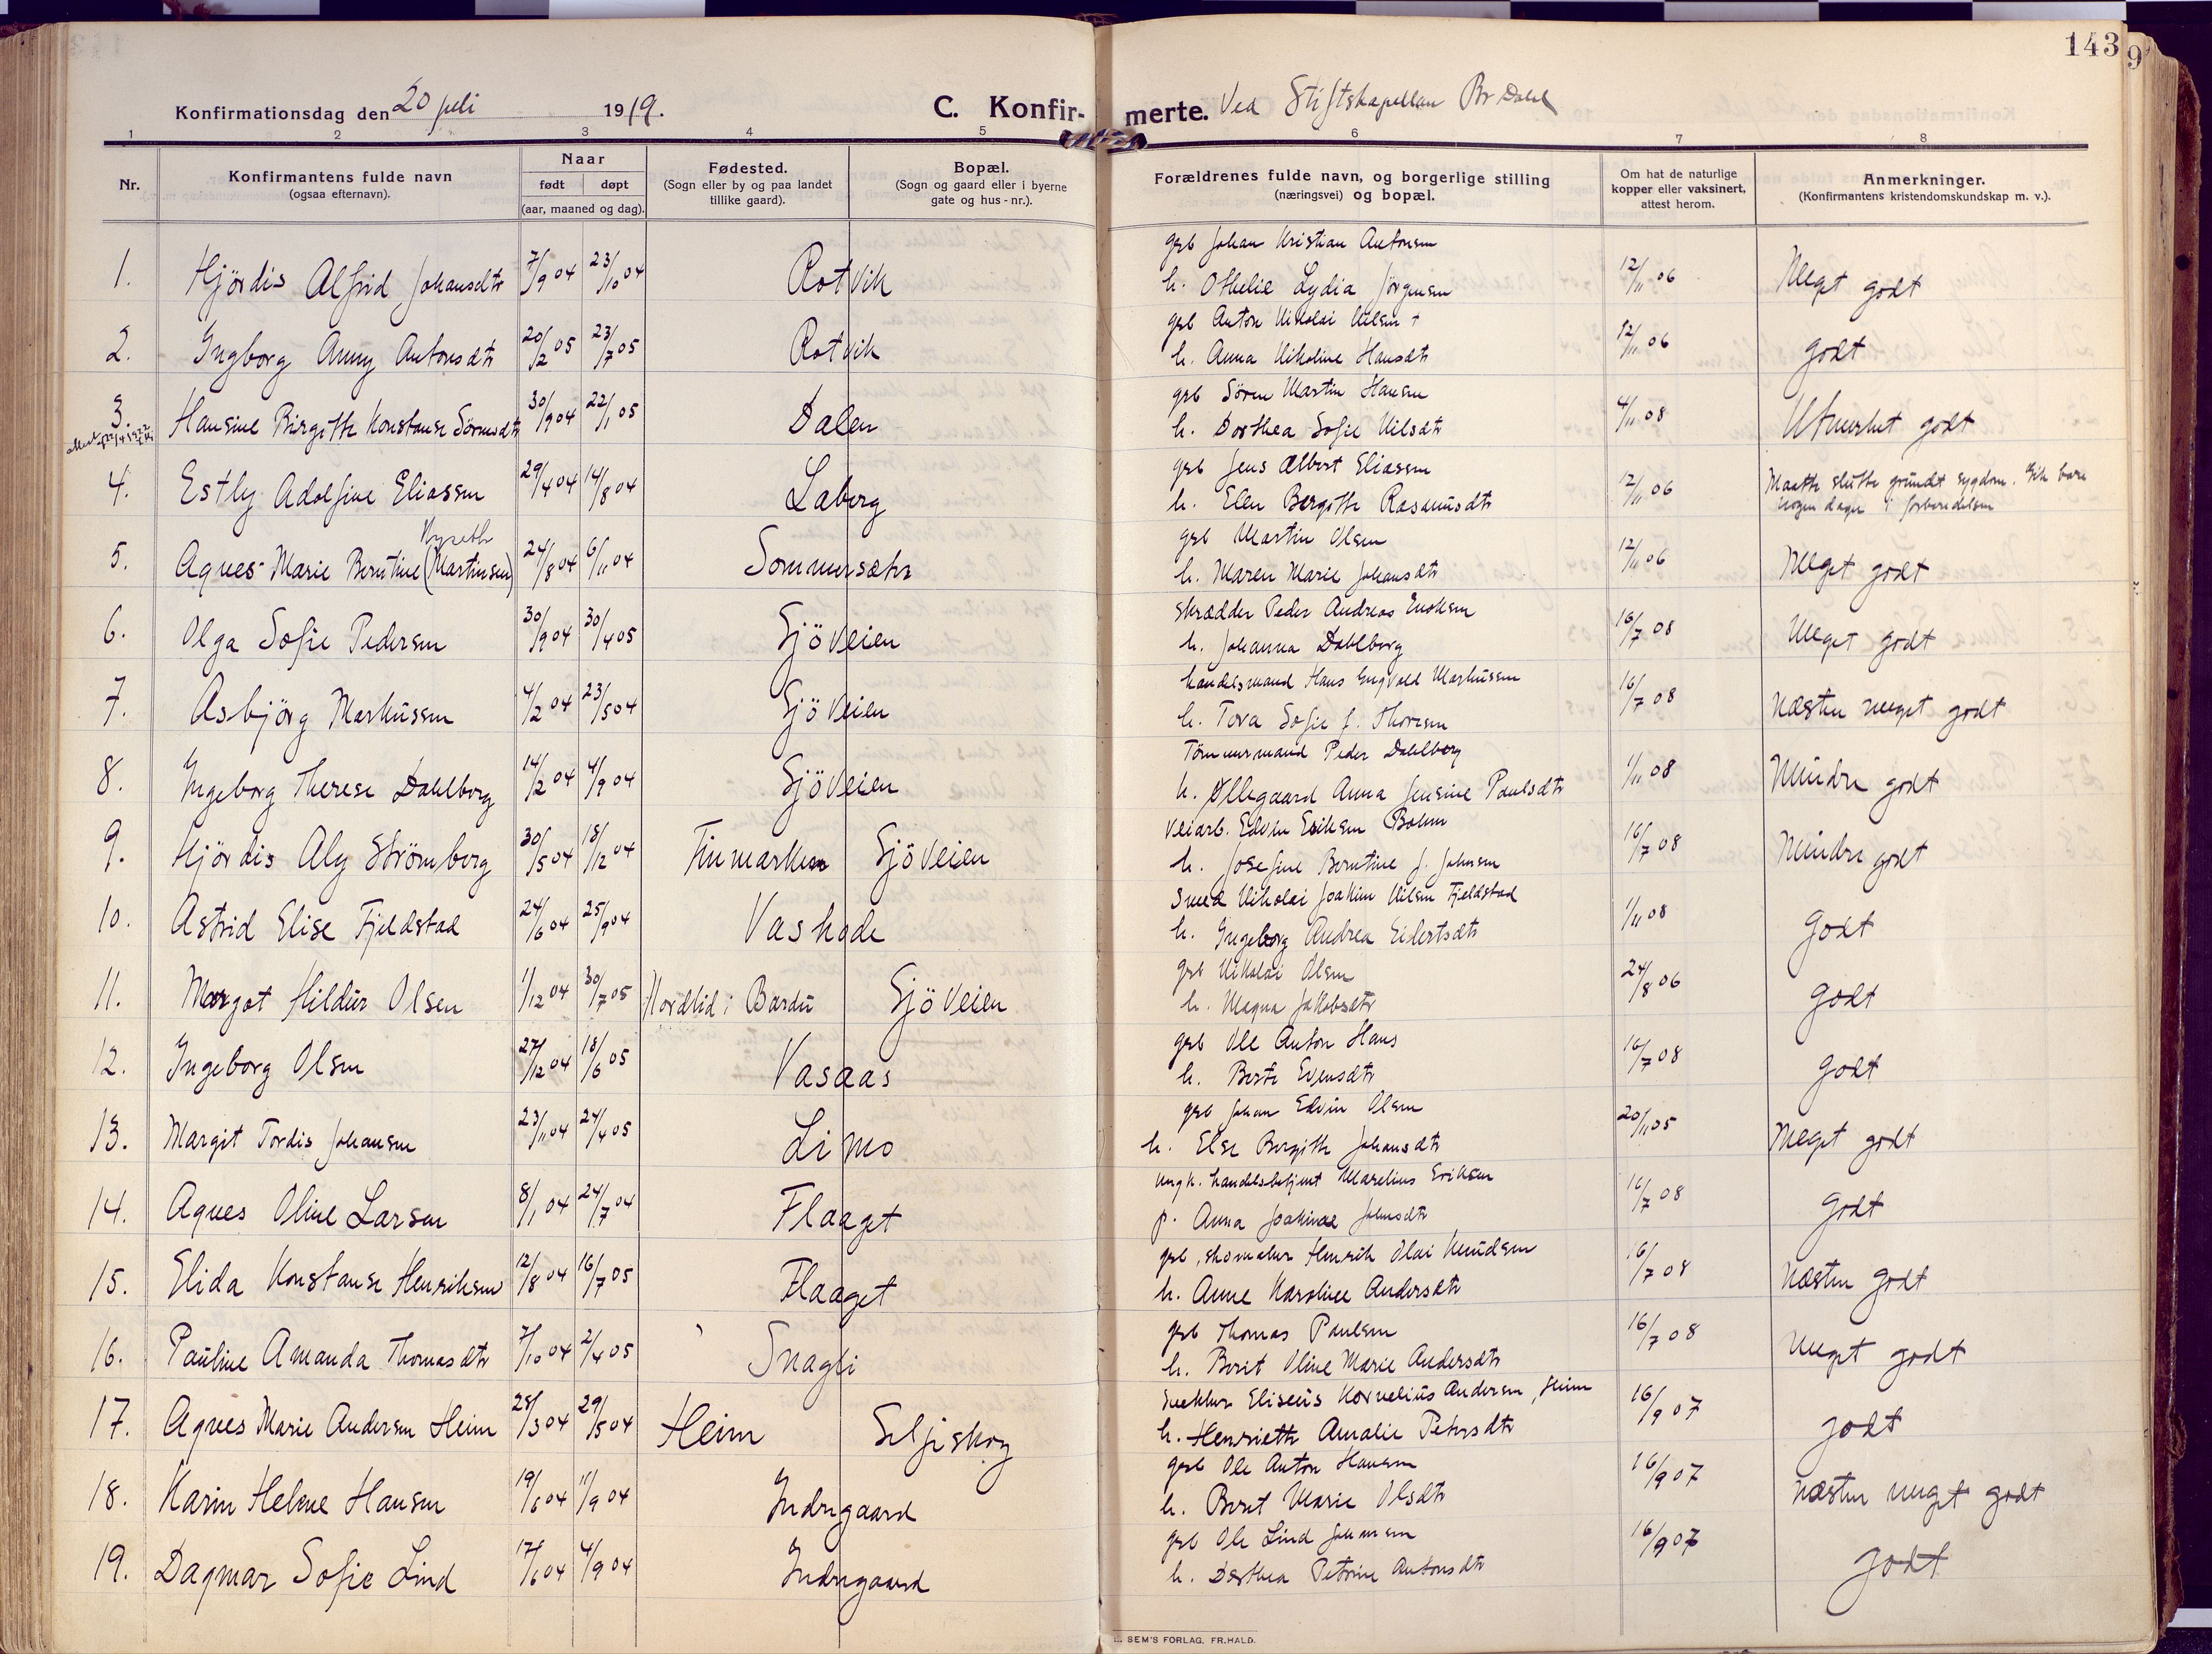 143
9
Konfirmationsdag den 20 juli 1919. C. Konfir- merte. Ved Stiftskapellan Br Dahl
1 2 3 4 5 6 7 8
Nr. Konfirmantens fulde navn (ogsaa efternavn). Naar født døpt (aar, maaned og dag). Fødested. (Sogn eller by og paa landet tillike gaard). Bopæl. (Sogn og gaard eller i byerne gate og hus-nr.). Forældrenes fulde navn, og borgerlige stilling (næringsvei) og bopæl. Om hat de naturlige kopper eller vaksinert, attest herom. Anmerkninger. (Konfirmantens kristendomskundskap m. v.).
grb Johan Kristian Antonsen
1. Hjördis Alfrid Johansdtr 7/9 04 23/10 04 Rotvik h. Othelie Lydia Jörgensen 12/11 06 Meget godt
grb Anton Nikolai Nilsen +
2. Ingborg Anny Antonsdtr 20/2 05 23/7 05 Rotvik h. Anna Nikoline Hansdtr 12/11 06 godt
grb Sören Martin Hansen
3. Hansine Birgitte Konstanse Sörensdtr 30/9 04 22/1 05 Dalen h. Dorthea Sofie Nilsdtr 4/11 08 Utmerket godt
grb Jens Albert Eliassen
4. Estly Adolfine Eliassen 29/4 04 14/8 04 Laberg h. Elen Bergitte Rasmusdtr 12/11 06 Maatte slutte grundt sygdom. Gik bare nogen dager i forberedelsen
grb Martin Olsen
5. Agnes Marie Berntine (Martinsen) 24/8 04 6/11 04 Sommersæter h. Maren Marie Johansdtr 12/11 06 Meget godt
skrædder Peder Andreas Enoksen
6. Olga Sofie Pedersen 30/9 04 30/4 05 Sjöveien h. Johanna Dahlberg 16/7 08 Meget godt
handelsmand Hans Engvald Markussen
7. Asbjörg Markussen 4/2 04 23/5 04 Sjöveien h. Tora Sofie f. Thoresen 16/7 08 Næsten meget godt
Tömmermand Peder Dahlberg
8. Ingeborg Therese Dahlberg 14/2 04 4/9 04 Sjöveien h. Ollegaard Anna Jensine Paulsdtr 1/11 08 Mindre godt
Veiarb. Edvin Eriksen Bohm
9. Hjördis Aly Strömberg 30/5 04 18/12 04 Finmarken Sjöveien h. Josefine Berntine f. Johnsen 16/7 08 Mindre godt
Smed Nikolai Joakim Nilsen Fjeldstad
10. Astrid Elise Fjeldstad 24/6 04 25/9 04 Vashode h. Ingeborg Andrea Eidertsdtr 1/11 08 Godt
grb Nikolai Olsen
11. Margot Hildur Olsen 1/12 04 30/7 05 Nordlid i Bardu Sjöveien h. Magna Jakobsdtr 24/8 06 godt
grb Ole Anton Hans
12. Ingeborg Olsen 27/12 04 18/6 05 Vasaas h. Berte Evensdtr 16/7 08 godt
grb Johan Edvin Olsen
13. Margit Tordis Johansen 23/11 04 24/4 05 Limo h. Else Bergitte Johansdtr 20/11 05 Meget godt
ungk. handelsbetjent Marelius Eriksen
14. Agnes Oline Larsen 8/1 04 24/7 04 Flaaget p. Anna Joakime Johnsdtr 16/7 08 godt
grb, skomaker Henrik Olai Knudsen
15. Elida Konstanse Henriksen 12/8 04 16/7 05 Flaaget h. Anne Karoline Andersdtr 16/7 08 Næsten godt
grb Thomas Paulsen
16. Pauline Amanda Thomasdtr 7/10 04 2/4 05 Snagli h. Berit Oline Marie Andersdtr 16/7 08 meget godt
Snekker Eliseus Kornelius Andersen, Heim
17. Agnes Marie Andersen Heim 28/3 04 29/5 04 Heim Seljeskog h. Henriette Amalie Petersdtr 16/9 07 godt
grb Ole Anton Hansen
18. Karin Helene Hansen 19/6 04 11/9 04 Indregaard h. Berit Marie Olsdtr 16/9 07 næsten meget godt
grb Ole Lind Johansen
19. Dagmar Sofie Lind 17/6 04 4/9 04 Indregaard h. Dorthea Petrine Antonsdtr 16/9 07 godt
SEM'S FORLAG, FR.HALD.